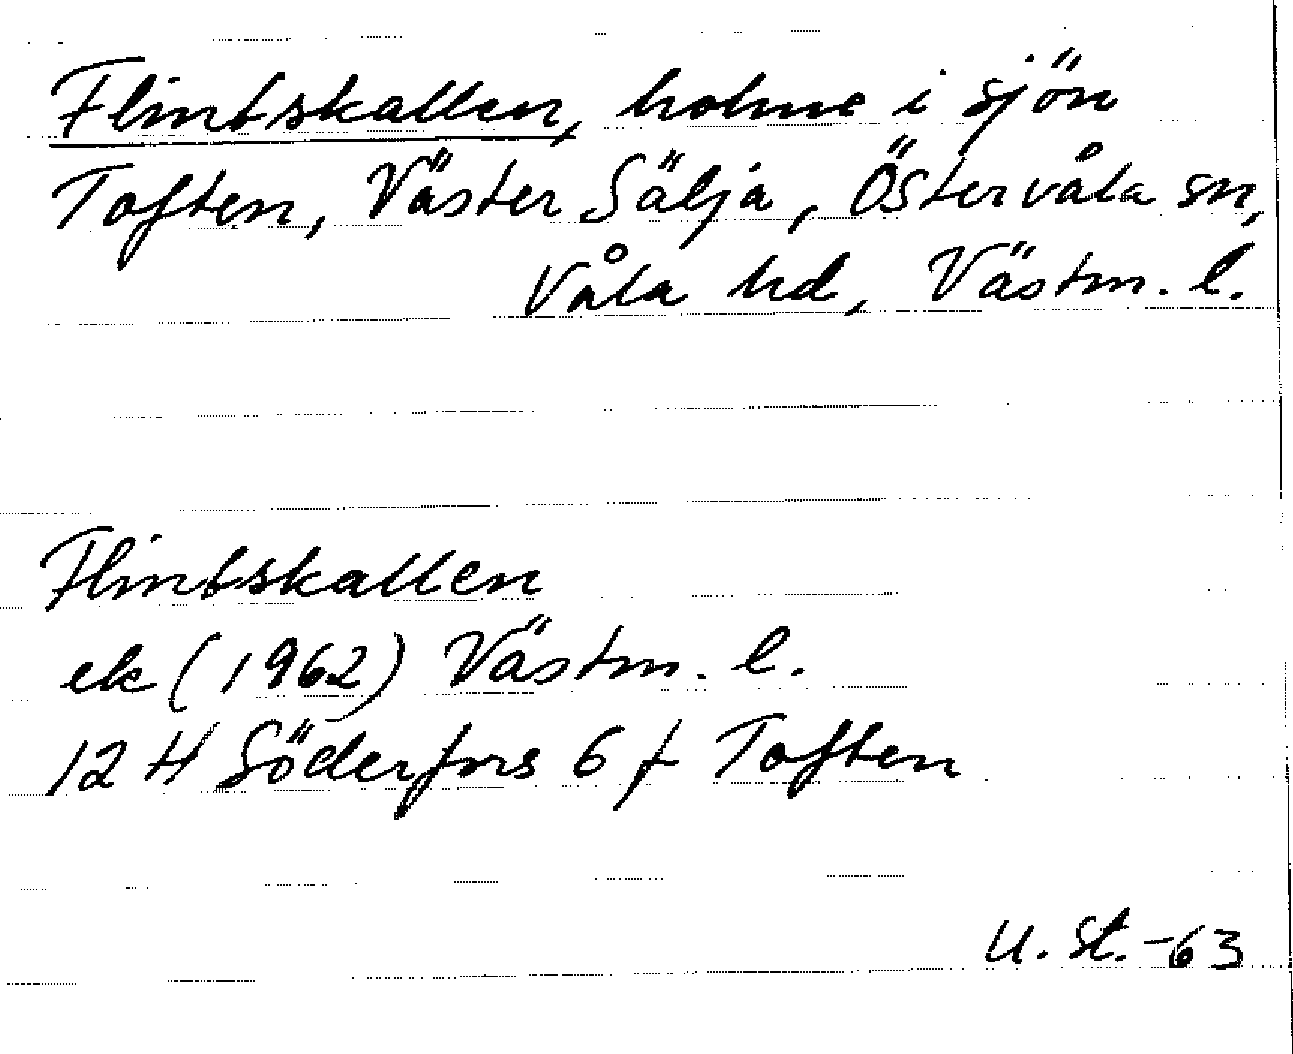 Flintskallen, holme i sjön
Toften, Väster Sälja, Östervåla sn,
Våla hd, Västm. l.
Flintskallen
ek (1962) Västm. l.
12 H Söderfors 6 f Toften
U. St. -63